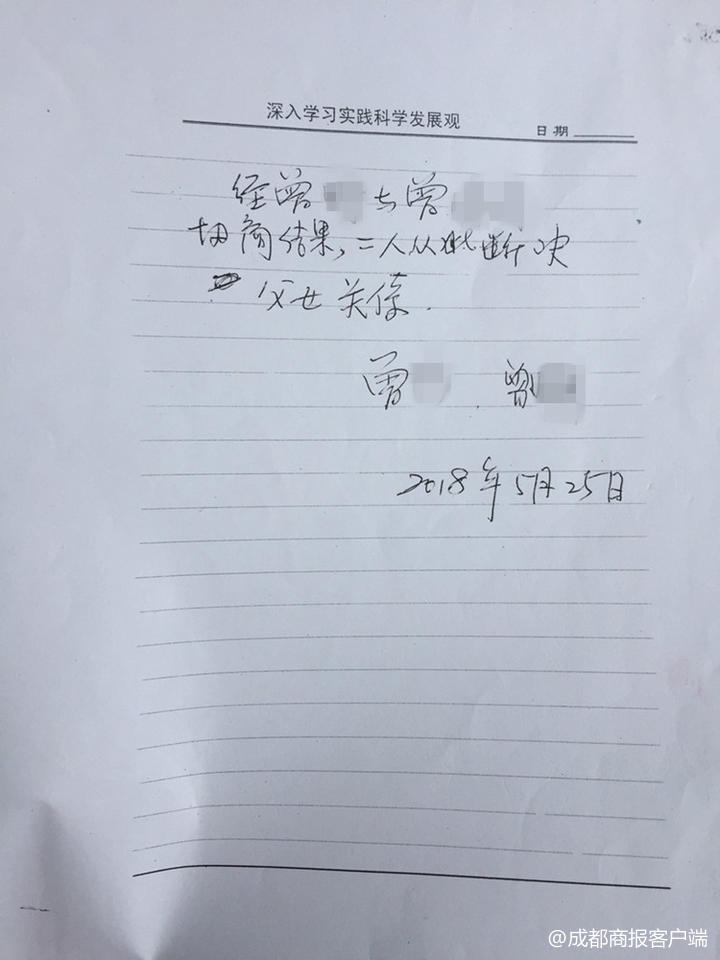 深入学习实践科学发展观
日期
经曾 与曾
协商结果，二人从此断决
父女关係.
曾 . 曾
2018年5月25日
@成都商报客户端